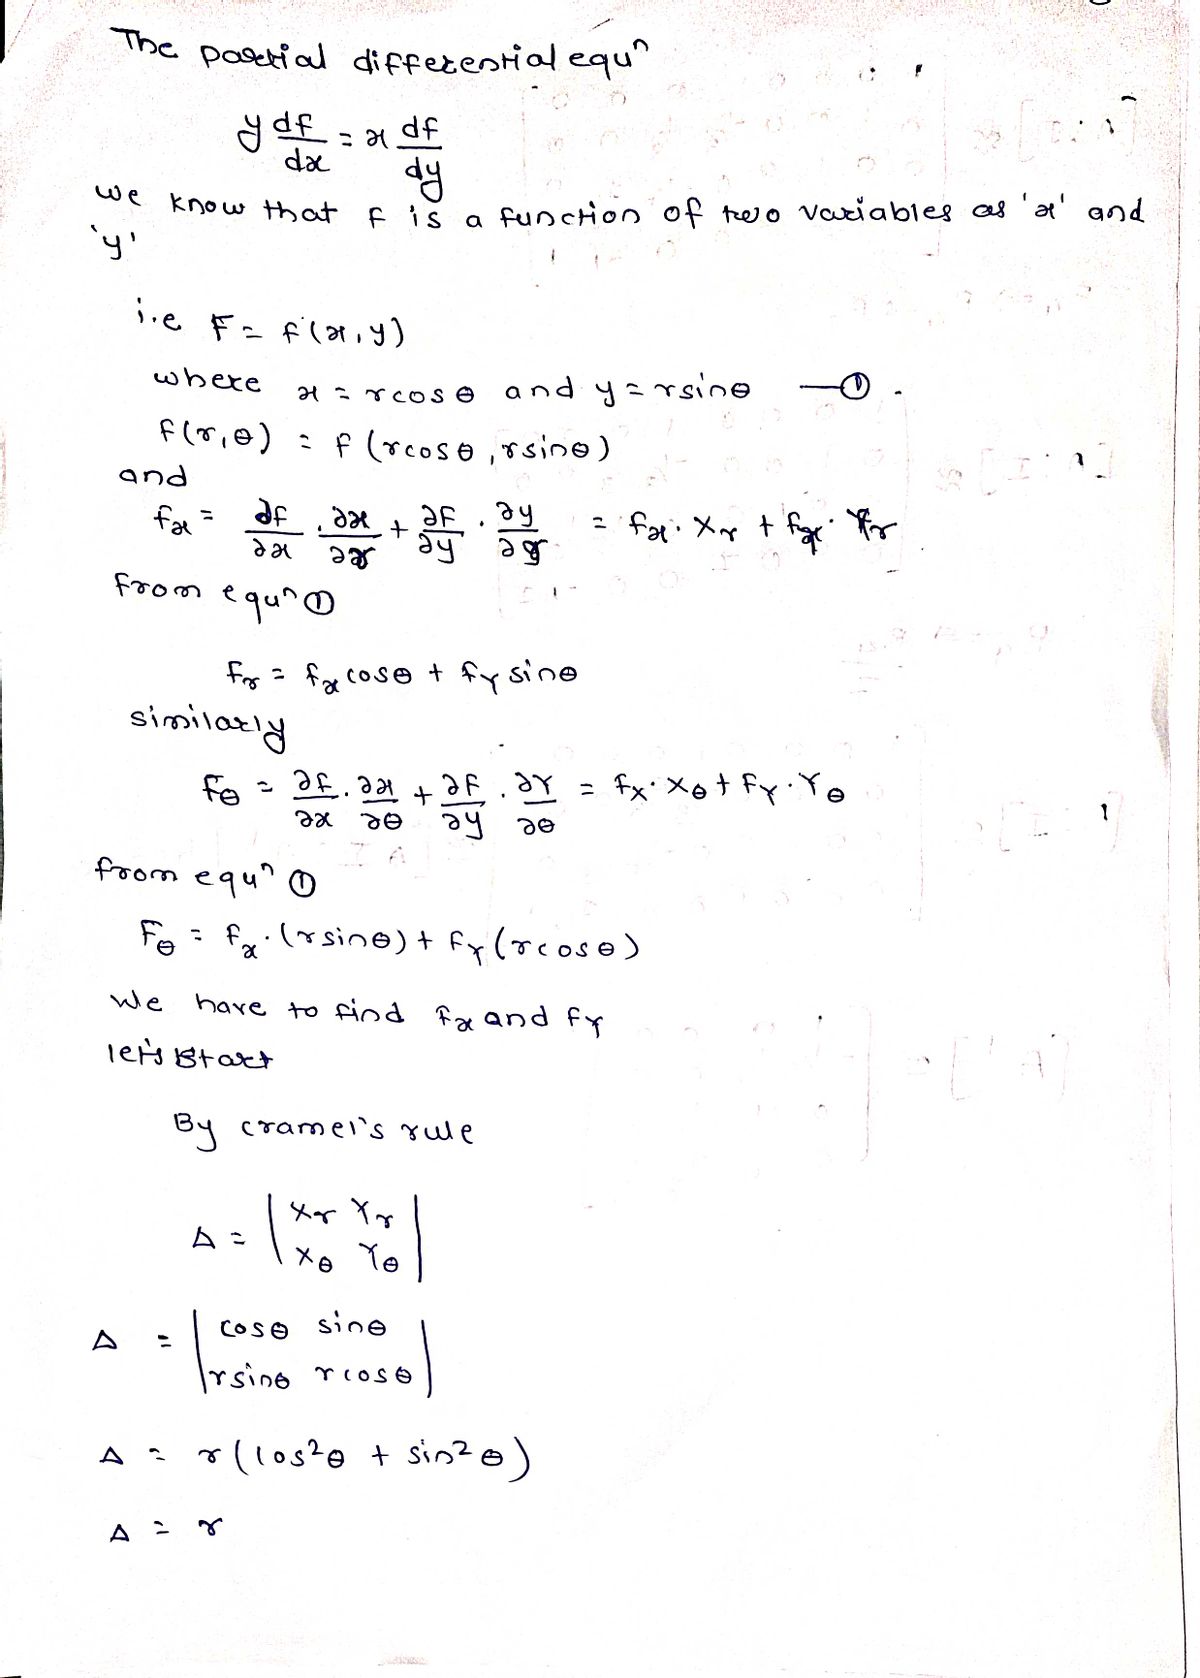 The partial differential equⁿ
y df/dx = x df/dy
we know that f is a function of two variables as 'x' and
'y'
i.e F = f(x,y)
where x = rcosθ and y = rsinθ —①.
f(r,θ) = f(rcosθ, rsinθ)
and
fx = ∂f/∂x . ∂x/∂r + ∂f/∂y . ∂y/∂r = fx. Xr + fy. Yr
from equⁿ ①
fr = fx cosθ + fy sinθ
similarly
Fθ = ∂f/∂x . ∂x/∂θ + ∂f/∂y . ∂Y/∂θ = fx. Xθ + fY. Yθ
from equⁿ ①
Fθ = fx.(rsinθ) + fY(rcosθ)
We have to find fx and fY
let's start
By cramel's rule
Δ = | Xr Yr |
| Xθ Yθ |
Δ = | cosθ sinθ |
| rsinθ rcosθ |
Δ = r(cos²θ + sin²θ)
Δ = r